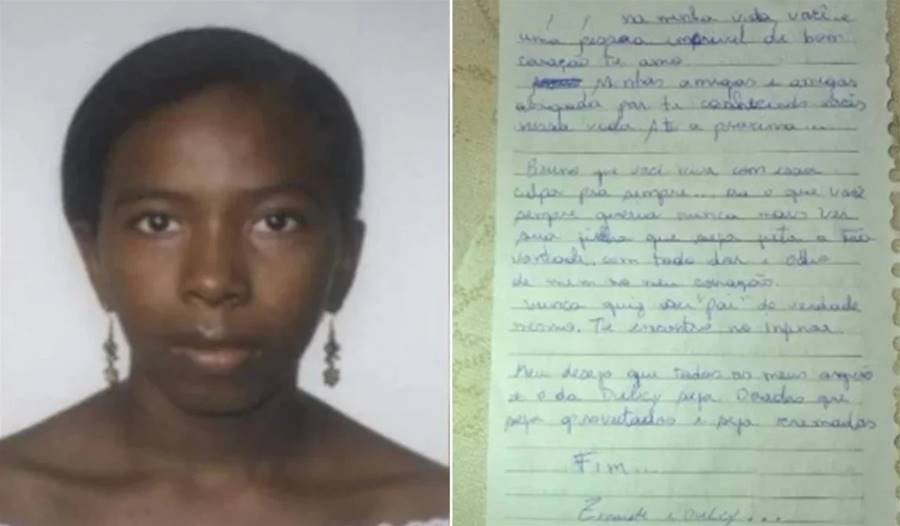 na minha vida você e
uma pessoa incrivel de bom
coração te amo
Minhas amigas e amigas
obrigada por te conhecendo vocês
nessa vida Até a proxima...
Bruno que você viva com essa
culpa pra sempre... era o que você
sempre queria nunca mais ver
sua filha que seja feita a tão
vontade. com todo dor e odio
de mim no meu coração.
nunca quiz ser "pai" de verdade
mesmo. Te encontro no
Meu desejo que todos os meus
e o da Dulcy seja Doados que
seja aproveitados e seja cremadas
Fim...
Dulcy...